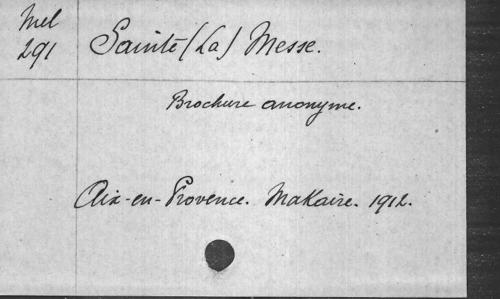 Mel
291
Sainte (La) Messe.
Brochure anonyme.
Aix-en-Provence. Makaire. 1912.